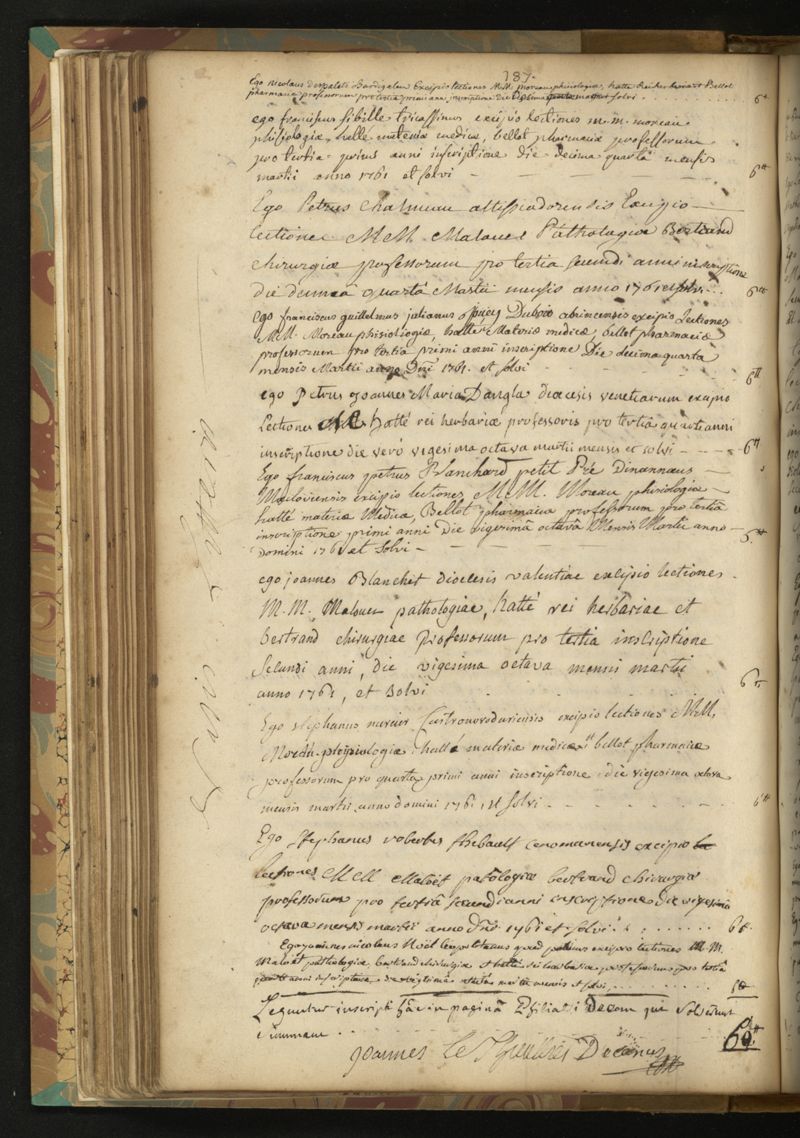 187.
Ego nicolaus Burdigalem Excipio lectiones M.M. moreau phisiologiae, hatté Rei herbariae et Bellot
pharmaciae professorum pro tertia primi anni inscriptione die solvi 6tt
ego franciscus sibille tricassinus excipio lectiones m.m. moreau
phisiologiae, hatte materiae medicae, bellot pharmaciae professorum
pro tertia primi anni inscriptione die decima quarta mensis
martii anno 1761 et solvi 6tt
Ego Petrus chalmeau altissiodorensis Excipio
lectiones M.M. Malouet Pathologiae Bertrand
chirurgiae professorum pro tertia secundi anni inscriptione
die decima quarta Martii mensis anno 1761 et solvi 6tt
Ego franciscus guillelmus julianus Dubois abrincensis excipio Lectiones
M.M. Moreau phisiologiae, hatté Materiae medicae, bellot pharmaciae
professorum pro tertia primi anni inscriptione Die decima quarta
mensis Martii anno Dni 1761. et solvi 6tt
ego Petrus joannes Maria Dangla diocesis venetiarum excipio
Lectiones hatté rei herbariae professoris pro tertia quarti anni
inscriptione die vero vigesima octava martii mensis et solvi 6tt
Ego franciscus petrus Blanchard petit Pré Dinannaeus
Macloviensis excipio lectiones M.M. Moreau phisiologiae
hatté materiae Medicae, Bellot pharmaciae professorum pro tertia
inscriptione primi anni Die vigesima octava Mensis Martii anno
Domini 1761 et solvi 6tt
ego joannes Blanchet diocesis valentiae excipio lectiones
M.M. Malouet pathologiae, hatté rei herbariae et
bertrand chirurgiae professorum pro tertia inscriptione
secundi anni, die vigesima octava mensis martii
anno 1761, et solvi 6tt
Ego stephanus mercier excipio lectiones M.M.
Moreau physiologiae hatté materiae medicae et bellot pharmaciae
professorum pro quarta primi anni inscriptione die vigesima octava
mensis martii anno domini 1761 et solvi 6tt
Ego stephanus robertus thebault cenomanensis excipio
lectiones M.M. Maloët patologiae bertrand chirurgiae
professorum pro tertia secundi anni inscriptione die vigesima
octava mensis martii anno Dni 1761 et solvi 6tt
Ego joannes nicolaus Noël excipio lectiones M.M.
Maloët pathologiae bertrand chirurgiae et hatté rei herbariae professorum pro tertia
anni inscriptione die vigesima octava martii mensis et solvi 6tt
Leguntur inscripti hâc in paginâ Philiatri Decem qui solverunt
summam 60tt
joannes Decanus